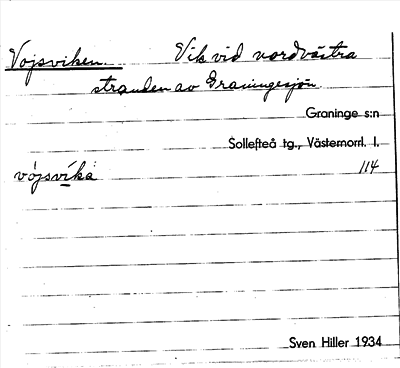 Vojsviken. Vik vid nordvästra
stranden av Graningesjön.
Graninge s:n
Sollefteå tg., Västernorrl. l.
vo̍jsvi̠ka 114
Sven Hiller 1934